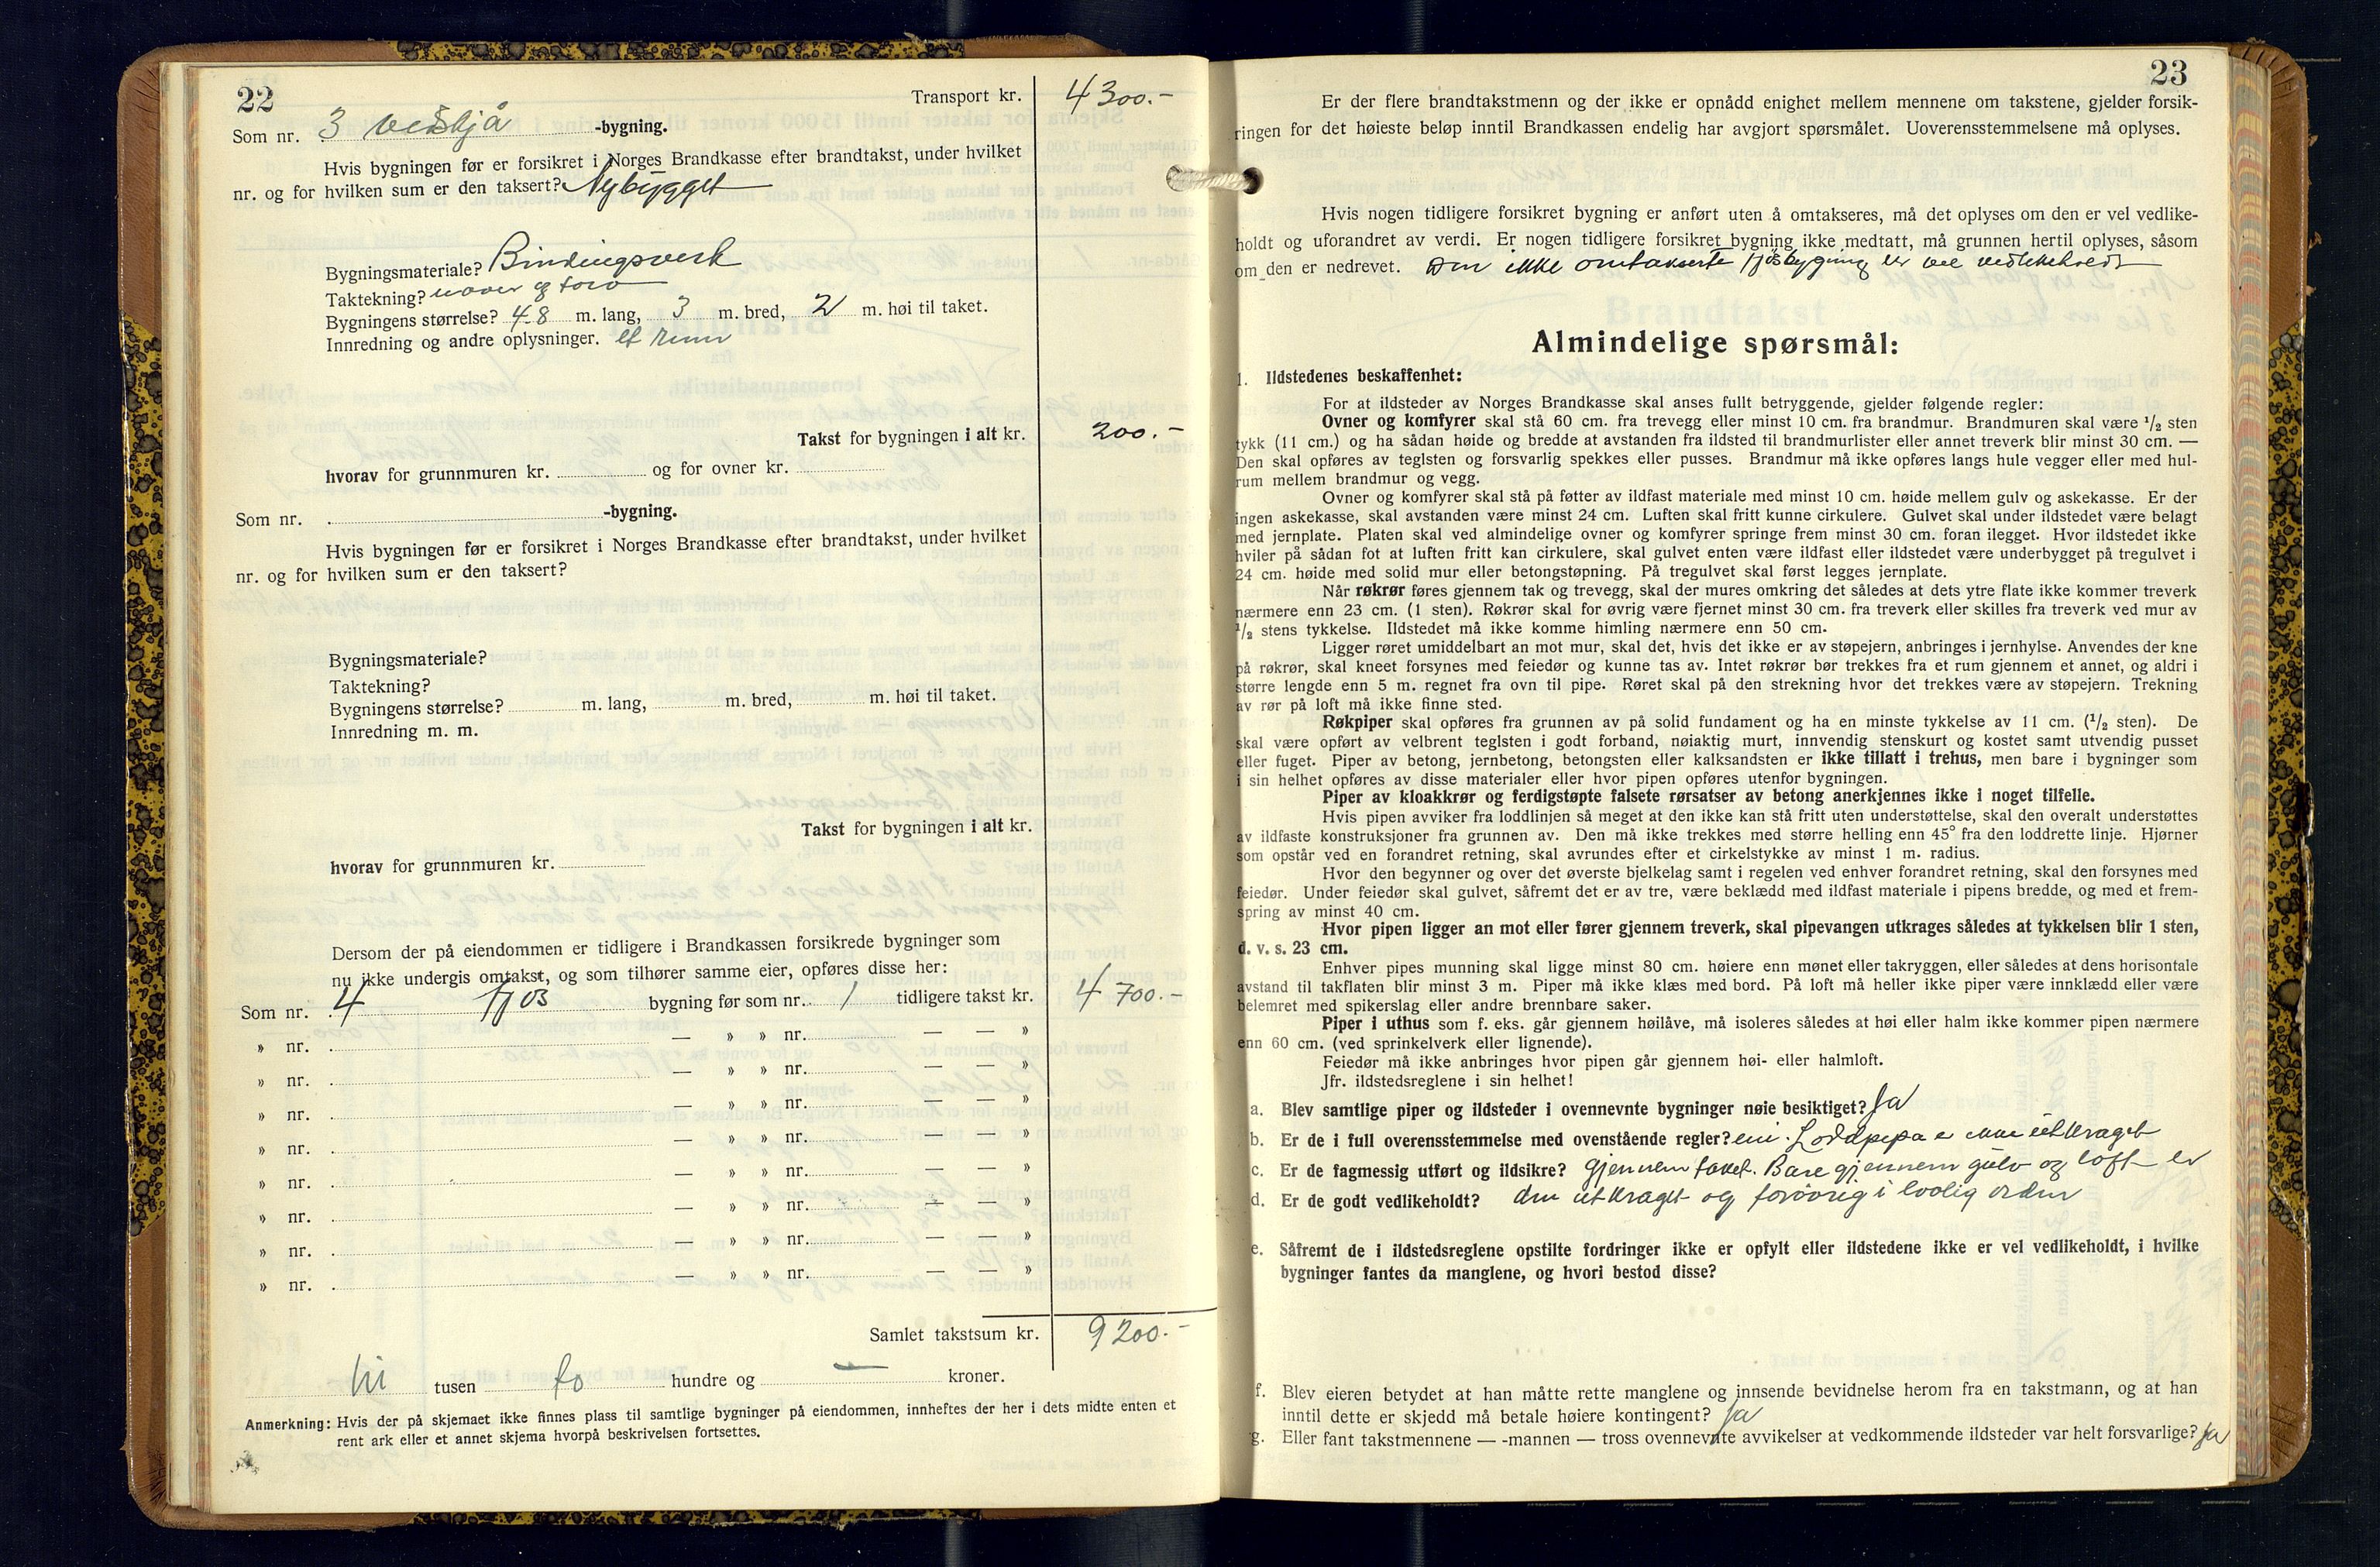 22
Transport kr. 4300.-
Som nr. 3 vedskjå -bygning.
Hvis bygningen før er forsikret i Norges Brandkasse efter brandtakst, under hvilket
nr. og for hvilken sum er den taksert? Nybygget
Bygningsmateriale? Bindingsverk
Taktekning? never og torv
Bygningens størrelse? 4.8 m. lang, 3 m. bred, 2 m. høi til taket.
Innredning og andre oplysninger. et rum
Takst for bygningen i alt kr. 200.-
hvorav for grunnmuren kr. og for ovner kr.
Som nr. -bygning.
Hvis bygningen før er forsikret i Norges Brandkasse efter brandtakst, under hvilket
nr. og for hvilken sum er den taksert?
Bygningsmateriale?
Taktekning?
Bygningens størrelse? m. lang, m. bred, m. høi til taket.
Innredning m. m.
Takst for bygningen i alt kr.
hvorav for grunnmuren kr.
Dersom der på eiendommen er tidligere i Brandkassen forsikrede bygninger som
nu ikke undergis omtakst, og som tilhører samme eier, opføres disse her:
Som nr. 4 fjøs bygning før som nr. 1 tidligere takst kr. 4700.-
» nr. — » » nr. — — »
» nr. — » » nr. — — »
» nr. — » » nr. — — »
» nr. — » » nr. — — »
» nr. — » » nr. — — »
» nr. — » » nr. — — »
» nr. — » » nr. — — »
» nr. — » » nr. — — »
Samlet takstsum kr. 9200.-
ni tusen to hundre og — kroner.
Anmerkning: Hvis der på skjemaet ikke finnes plass til samtlige bygninger på eiendommen, innheftes der her i dets midte enten et
rent ark eller et annet skjema hvorpå beskrivelsen fortsettes.
23
Er der flere brandtakstmenn og der ikke er opnådd enighet mellem mennene om takstene, gjelder forsik-
ringen for det høieste beløp inntil Brandkassen endelig har avgjort spørsmålet. Uoverensstemmelsene må oplyses.
Hvis nogen tidligere forsikret bygning er anført uten å omtakseres, må det oplyses om den er vel vedlike-
holdt og uforandret av verdi. Er nogen tidligere forsikret bygning ikke medtatt, må grunnen hertil oplyses, såsom
om den er nedrevet. Den ikke omtakserte fjøsbygning er vel vedlikeholdt
Almindelige spørsmål:
1. Ildstedenes beskaffenhet:
For at ildsteder av Norges Brandkasse skal anses fullt betryggende, gjelder følgende regler:
Ovner og komfyrer skal stå 60 cm. fra trevegg eller minst 10 cm. fra brandmur. Brandmuren skal være 1/2 sten
tykk (11 cm.) og ha sådan høide og bredde at avstanden fra ildsted til brandmurlister eller annet treverk blir minst 30 cm. —
Den skal opføres av teglsten og forsvarlig spekkes eller pusses. Brandmur må ikke opføres langs hule vegger eller med hul-
rum mellem brandmur og vegg.
Ovner og komfyrer skal stå på føtter av ildfast materiale med minst 10 cm. høide mellem gulv og askekasse. Er der
ingen askekasse, skal avstanden være minst 24 cm. Luften skal fritt kunne cirkulere. Gulvet skal under ildstedet være belagt
med jernplate. Platen skal ved almindelige ovner og komfyrer springe frem minst 30 cm. foran ilegget. Hvor ildstedet ikke
hviler på sådan fot at luften fritt kan cirkulere, skal gulvet enten være ildfast eller ildstedet være underbygget på tregulvet i
24 cm. høide med solid mur eller betongstøpning. På tregulvet skal først legges jernplate.
Når røkrør føres gjennem tak og trevegg, skal der mures omkring det således at dets ytre flate ikke kommer treverk
nærmere enn 23 cm. (1 sten). Røkrør skal for øvrig være fjernet minst 30 cm. fra treverk eller skilles fra treverk ved mur av
1/2 stens tykkelse. Ildstedet må ikke komme himling nærmere enn 50 cm.
Ligger røret umiddelbart an mot mur, skal det, hvis det ikke er av støpejern, anbringes i jernhylse. Anvendes der kne
på røkrør, skal kneet forsynes med feiedør og kunne tas av. Intet røkrør bør trekkes fra et rum gjennem et annet, og aldri i
større lengde enn 5 m. regnet fra ovn til pipe. Røret skal på den strekning hvor det trekkes være av støpejern. Trekning
av rør på loft må ikke finne sted.
Røkpiper skal opføres fra grunnen av på solid fundament og ha en minste tykkelse av 11 cm. (1/2 sten). De
skal være opført av velbrent teglsten i godt forband, nøiaktig murt, innvendig stenskurt og kostet samt utvendig pusset
eller fuget. Piper av betong, jernbetong, betongsten eller kalksandsten er ikke tillatt i trehus, men bare i bygninger som
i sin helhet opføres av disse materialer eller hvor pipen opføres utenfor bygningen.
Piper av kloakkrør og ferdigstøpte falsete rørsatser av betong anerkjennes ikke i noget tilfelle.
Hvis pipen avviker fra loddlinjen så meget at den ikke kan stå fritt uten understøttelse, skal den overalt understøttes
av ildfaste konstruksjoner fra grunnen av. Den må ikke trekkes med større helling enn 45° fra den loddrette linje. Hjørner
som opstår ved en forandret retning, skal avrundes efter et cirkelstykke av minst 1 m. radius.
Hvor den begynner og over det øverste bjelkelag samt i regelen ved enhver forandret retning, skal den forsynes med
feiedør. Under feiedør skal gulvet, såfremt det er av tre, være beklædd med ildfast materiale i pipens bredde, og med et frem-
spring av minst 40 cm.
Hvor pipen ligger an mot eller fører gjennem treverk, skal pipevangen utkrages således at tykkelsen blir 1 sten,
d. v. s. 23 cm.
Enhver pipes munning skal ligge minst 80 cm. høiere enn mønet eller takryggen, eller således at dens horisontale
avstand til takflaten blir minst 3 m. Piper må ikke klæs med bord. På loft må heller ikke piper være innklædd eller være
belemret med spikerslag eller andre brennbare saker.
Piper i uthus som f. eks. går gjennem høilåve, må isoleres således at høi eller halm ikke kommer pipen nærmere
enn 60 cm. (ved sprinkelverk eller lignende).
Feiedør må ikke anbringes hvor pipen går gjennem høi- eller halmloft.
Jfr. ildstedsreglene i sin helhet!
a. Blev samtlige piper og ildsteder i ovennevnte bygninger nøie besiktiget? Ja
b. Er de i full overensstemmelse med ovenstående regler? nei. Loddpipa e ikke utkraget
c. Er de fagmessig utført og ildsikre? gjennem taket. Bare gjennem gulv og loft er
d. Er de godt vedlikeholdt? den utkraget og forøvrig i lovlig orden
e. Såfremt de i ildstedsreglene opstilte fordringer ikke er opfylt eller ildstedene ikke er vel vedlikeholdt, i hvilke
bygninger fantes da manglene, og hvori bestod disse?
f. Blev eieren betydet at han måtte rette manglene og innsende bevidnelse herom fra en takstmann, og at han
inntil dette er skjedd må betale høiere kontingent? Ja
g. Eller fant takstmennene — -mannen — tross ovennevnte avvikelser at vedkommende ildsteder var helt forsvarlige? Ja